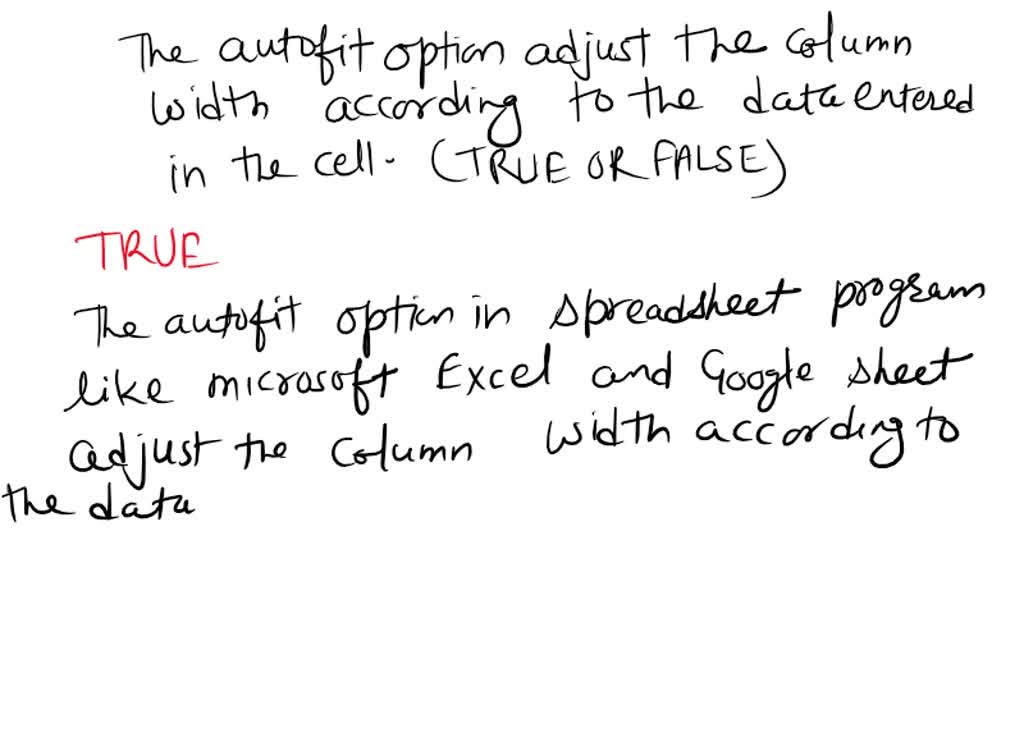 The autofit option adjust the column
width according to the data entered
in the cell. (TRUE OR FALSE)
TRUE
The autofit option in spreadsheet program
like microsoft Excel and Google sheet
adjust the column width according to
the data